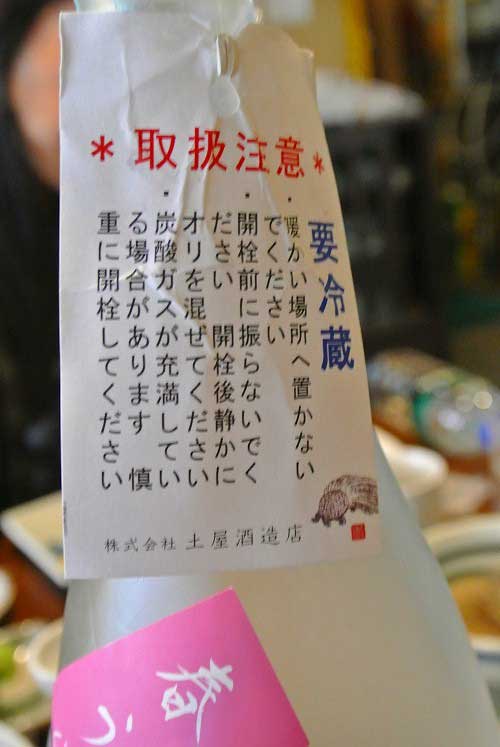 ＊取扱注意＊
要冷蔵
・暖かい場所へ置かない
でください
・開栓前に振らないでく
ださい　開栓後静かに
オリを混ぜてください
・炭酸ガスが充満してい
る場合があります　慎
重に開栓してください
株式会社 土屋酒造店
春う